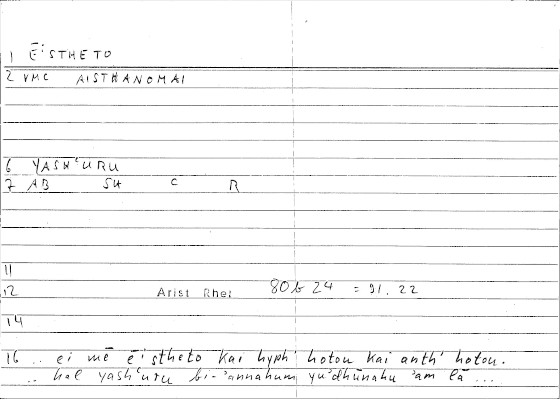 1 ĒISTHETO
2 VMC AISTHANOMAI
6 YASHʿURU
7 AB SH C R
11
12 Arist Rhet 80b24 = 91.22
14
16 .. ei mē ēistheto kai hyph' hotou kai anth' hotou.
.. hal yashʿuru bi-ʾannahum yuʾdhūnahu ʾam lā ...